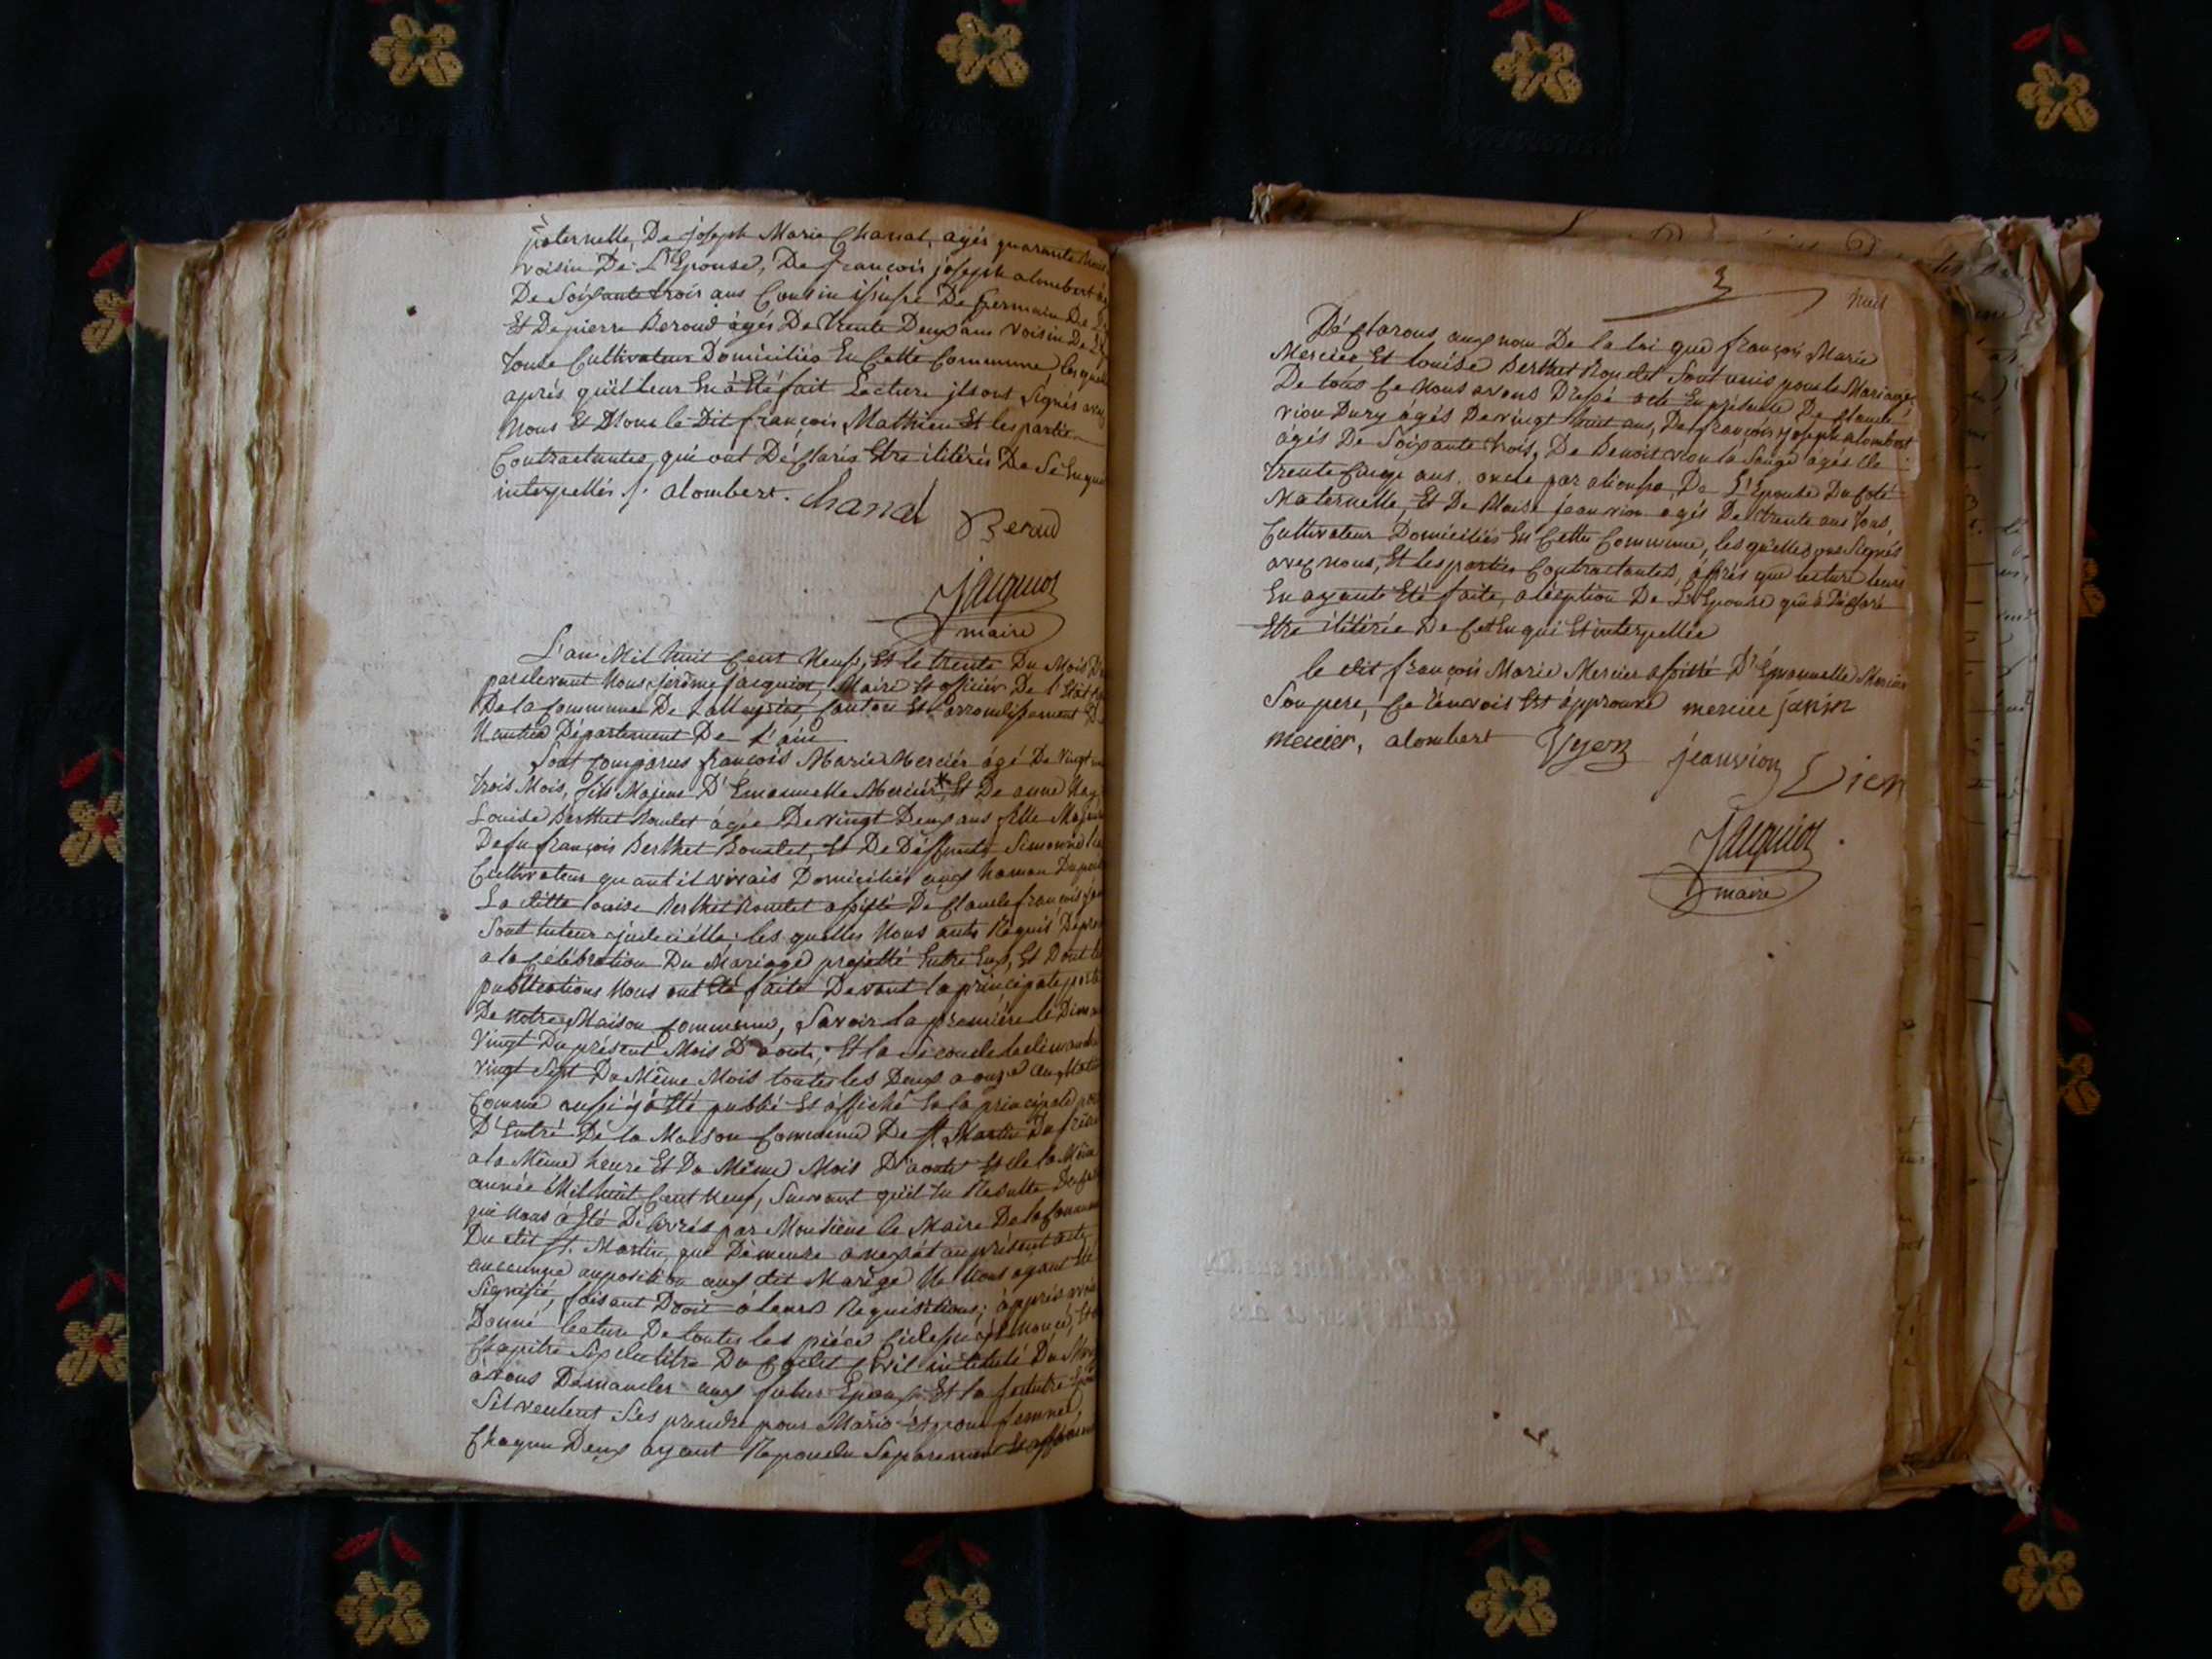 paternelle, De joseph Marie Chanal, agés quarante trois
voisin De L'Epouse, De françois joseph alombert
De Soixante trois ans Cousin issuse De germain De
Et De pierre Beroud àgés De trente Deux ans voisin De
touse Cultivateur Domiciliés En Cette Commune, les quelle
après qu'il leur En à Eté fait Lecture ils ont Signés avec
Nous Et Non le Dit françois Mathieu Et les partie
Contractantes, qui ont Déclaris Etre ilitérés De Se Enquis
interpellés f. alombert. Chanal
Beraud
Jacquiot
maire
L'an Mil huit Cent Neuf, Et le trente Du Mois D'
pardevant Nous Jerôme jacquiot, Maire Et officier De l'Etat
De la Commune De Lalleyriat, Canton Et arrondissement De
Nantua Département De L'ain
Sont Comparus françois Marie Mercier ágé De Vingt
trois Mois, fils Majeur D'Emanuelle Mercier*, Et De anne
Louise Berthet Roulet ágée De vingt Deux ans fille Majeure
De fu françois Berthet Roulet, Et De Deffunte Simonne
Cultivateur quant il vivais Domiciliés aux hamau Du
La ditte louise Berthet Roulet assisté De Claude françois
Sont tuteur judiciélle; les quelles Nous ants Réquis De
a la Célébration Du Mariage projetté Entre Eux, Et Dont les
publications Nous ont Eté faite Devant la principale porte
De notre Maison Commune, Savoir la première le Dimanche
Vingt Du présent Mois D'aoute, Et la Seconde le dimanche
vingt Sept Du Même Mois toutes les Deux a onze
Comme aussi il á Eté publié Et affiché En la principale porte
D'Entré De la Maison Commune De St. Martin Du frêne
a la Même heure Et Du Même Mois D'aoute Et de la Même
année Mil huit Cent Neuf, Suivant qu'il En Résulte
qui Nous á Eté Délivrés par Monsieur le Maire De la Commune
Du dit St. Martin, que Demeure anexsét au présent acte
aucunne auposition aux dit Mariage Ne Nous ayant Eté
Signifié, faisant Droit á leurs Requisitions; áppres avoir
Donné lecture De toutes les piéce Cidessus Enoncé, Et
Chapitre Six du titre Du Codes Civil intitulé Du
avons Demander aux futur Epoux Et la fututre Epouse
Sil veulent Ses prendre pour Mario Et pour femme,
Chaqun Deux ayant Répondu Séparément Et affirmative
3
huit
Déclarons aux nom De la loi que françois Marie
Mercier, Et louise Berthet Roulet Sont unis pour le Mariage,
De tout Ce Nous avons Dressé acte En présence De Claude
vion Dury ágés De vingt huit ans, De françois joseph alombert
ágés De Soixante trois, De Benoit vion la Sauge ágés De
trente Cinqs ans. oncle par alionse De L'Epouse Du Coté
Maternelle, Et De Blaise jean vion agés De trente ans tous,
Cultivateur Domiciliés En Cette Commune, les qu'elles ons Signés
avec nous, Et les parties Contractantes, áprès que lecture leurs
En ayante Eté faite, aléxption De L'Epouse qui á Déclaré
Etre ilitérée De Cet En qui Et interpellée
le dit françois Marie Mercier assisté D'Emanuelle Mercier
Son pere, Ce Renvois Est ápprouvé mercier janin
mercier, alombert Vyon jeanvion Vion
Jacquiot
maire